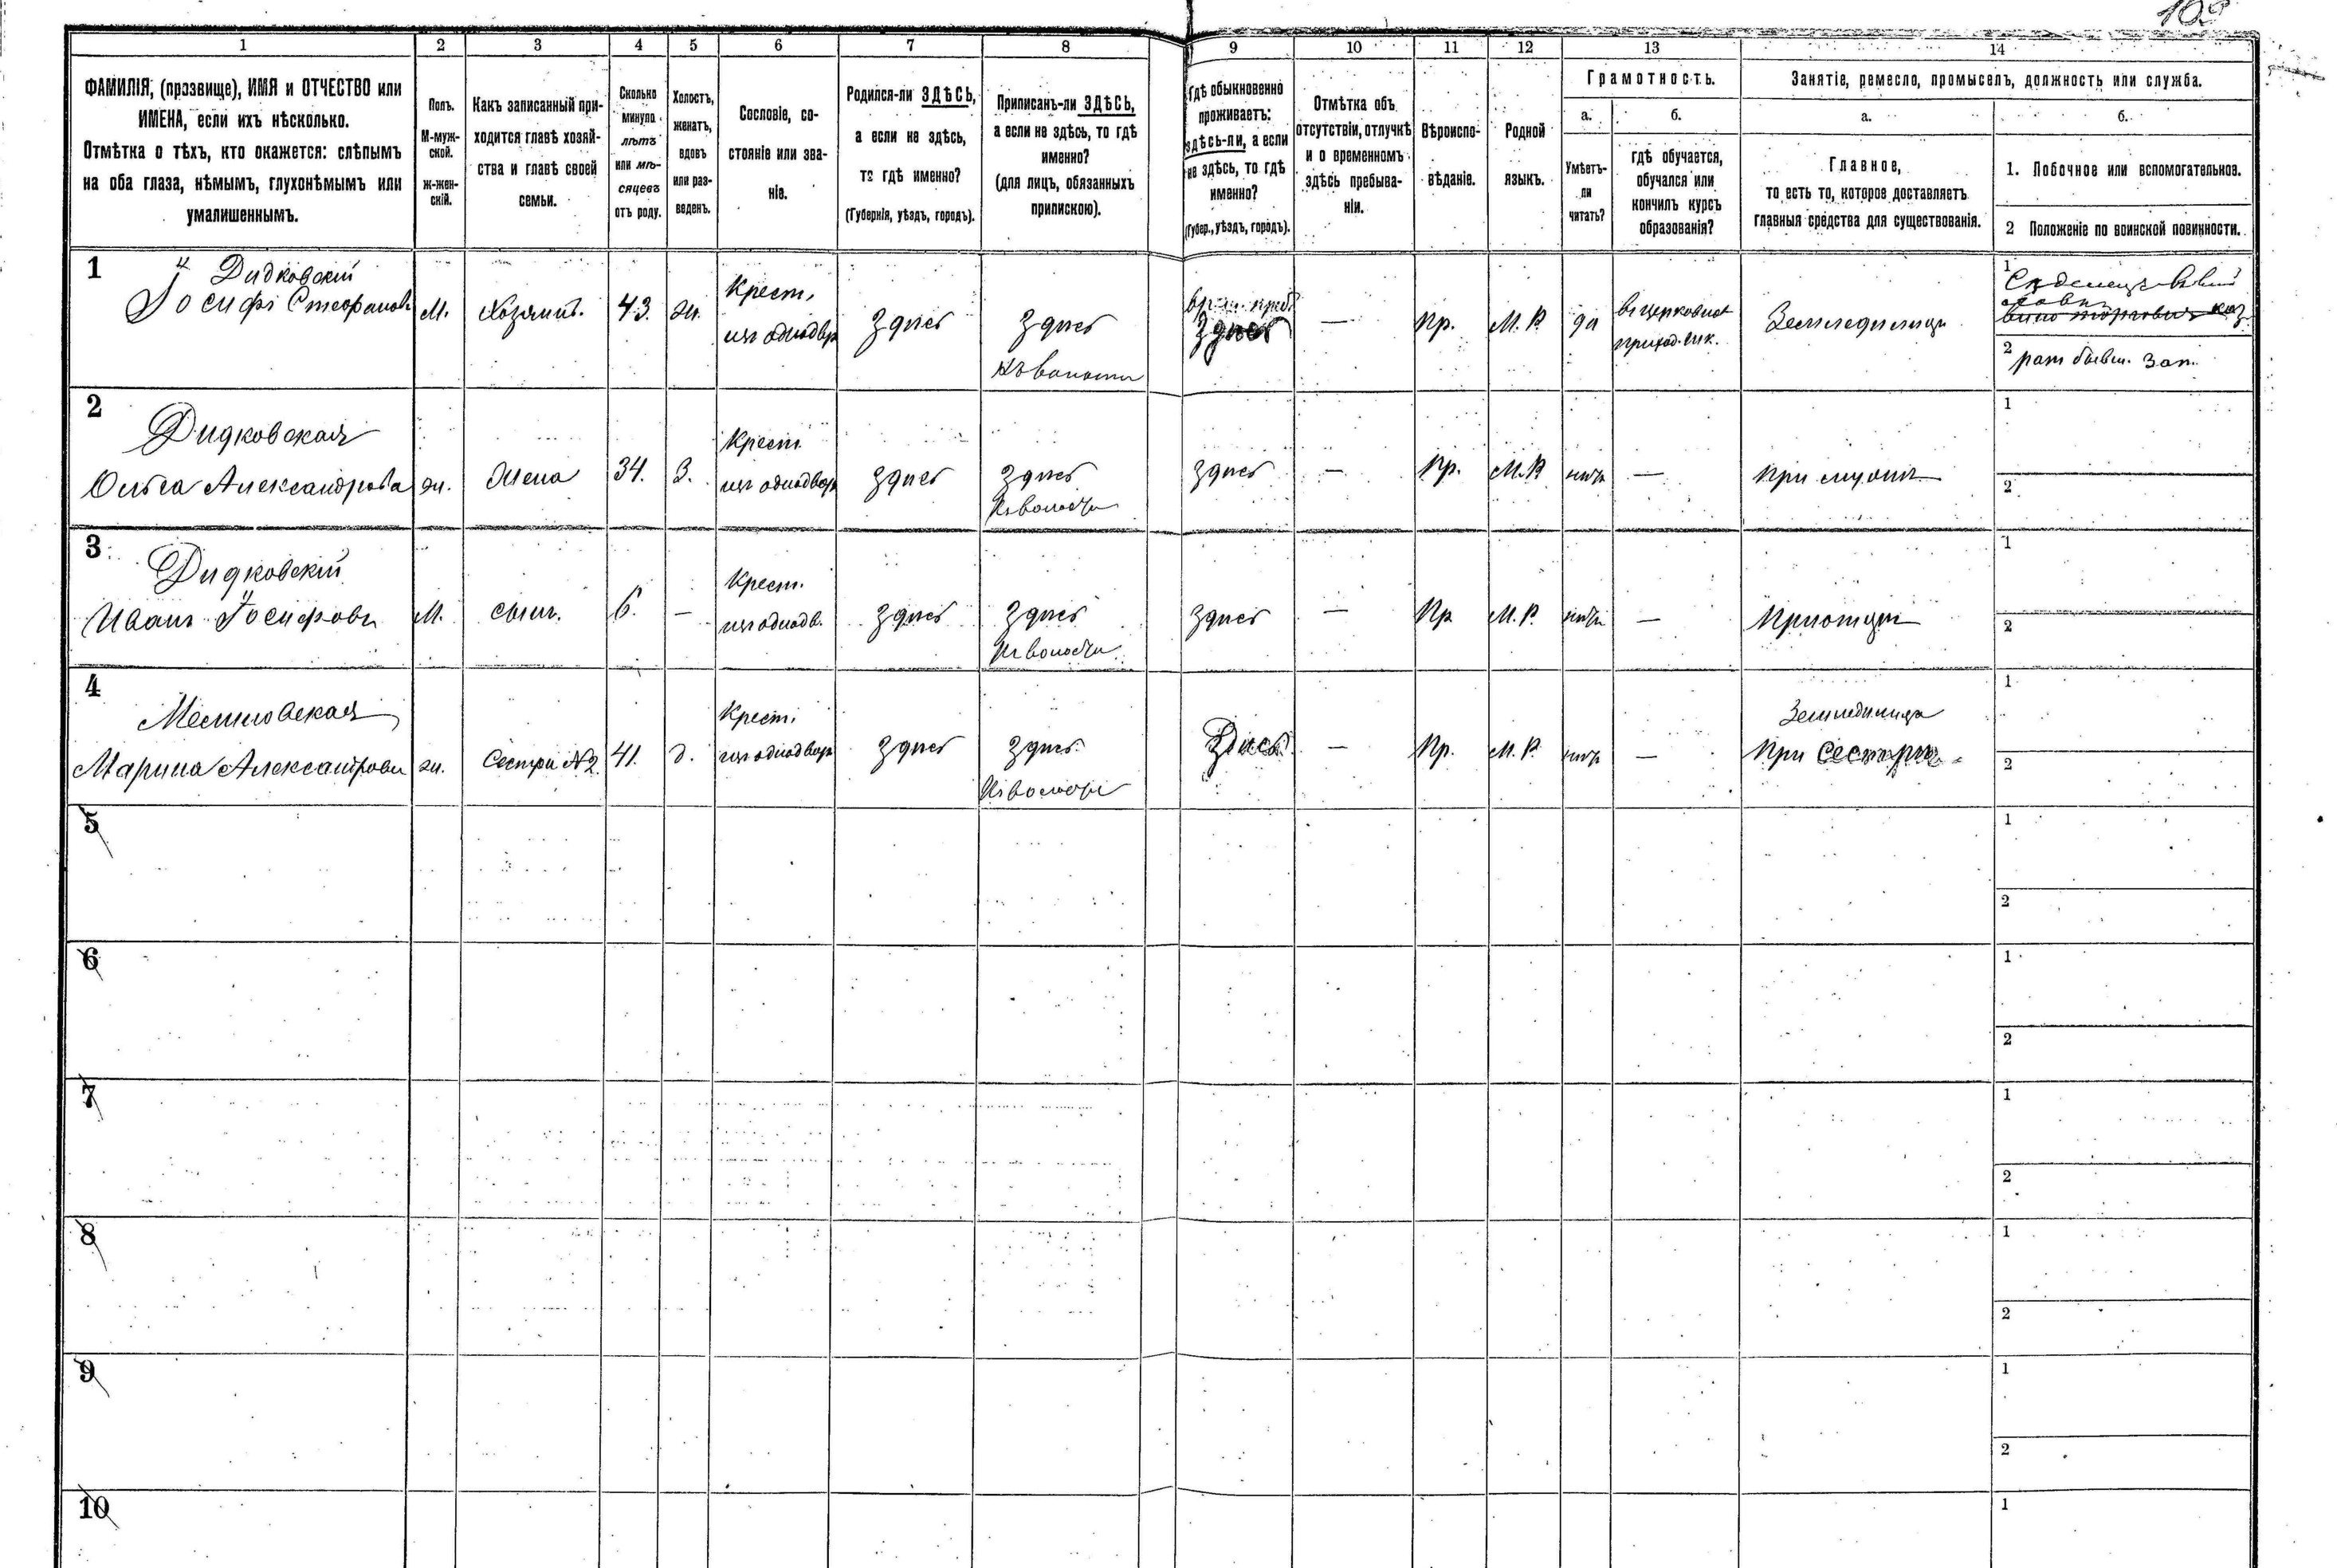 1 2 3 4 5 6 7 8 9 10 11 12 13 14
ФАМИЛІЯ, (прозвище), ИМЯ и ОТЧЕСТВО или
ИМЕНА, если ихъ нѣсколько.
Отмѣтка о тѣхъ, кто окажется: слѣпымъ
на оба глаза, нѣмымъ, глухонѣмымъ или
умалишеннымъ.
Полъ.
М-муж-
ской.
ж-жен-
скій.
Какъ записанный при-
ходится главѣ хозяй-
ства и главѣ своей
семьи.
Сколько
минуло
лѣтъ
или мѣ-
сяцевъ
отъ роду.
Холостъ,
женатъ,
вдовъ
или раз-
веденъ.
Сословіе, со-
стояніе или зва-
ніе.
Родился-ли ЗДѢСЬ,
а если не здѣсь,
то гдѣ именно?
(Губернія, уѣздъ, городъ).
Приписанъ-ли ЗДѢСЬ,
а если не здѣсь, то гдѣ
именно?
(для лицъ, обязанныхъ
припискою).
Гдѣ обыкновенно
проживаетъ:
здѣсь-ли, а если
не здѣсь, то гдѣ
именно?
(Губер., уѣздъ, городъ).
Отмѣтка объ
отсутствіи, отлучкѣ
и о временномъ
здѣсь пребыва-
ніи.
Вѣроиспо-
вѣданіе.
Родной
языкъ.
Грамотность.
а.
Умѣетъ-
ли
читать?
б.
гдѣ обучается,
обучался или
кончилъ курсъ
образованія?
Занятіе, ремесло, промыселъ, должность или служба.
а.
Главное,
то есть то, которое доставляетъ
главныя средства для существованія.
б.
1. Побочное или вспомогательное.
2 Положеніе по воинской повинности.
1
Дидковскій
Іосифъ Стефановъ
М.
Хозяинъ.
43.
ж.
Крест.
изъ однодвор
здѣсь
здѣсь
къ волости
здѣсь
—
Пр.
М. Р.
да
въ церковной
приход. шк.
Земледѣлецъ
1
2
рат. бывш. зап.
2
Дидковская
Ольга Александрова
ж.
Жена
34.
З.
Крест.
изъ однодвор
здѣсь
здѣсь
къ волости
здѣсь
—
Пр.
М. Р
нѣтъ
—
При мужѣ
1
2
3
Дидковскій
Иванъ Іосифовъ
М.
сынъ.
6.
—
Крест.
изъ однодв.
здѣсь
здѣсь
къ волости
здѣсь
—
Пр
М. Р.
нѣтъ
—
При отцѣ
1
2
4
Марина Александрова
ж.
Сестра №2.
41.
д.
Крест.
изъ однодвор
здѣсь
здѣсь
къ волости
Здѣсь
—
Пр.
М. Р.
нѣтъ
—
Земледѣлица
При сестрѣ
1
2
5
1
2
6
1
2
7
1
2
8
1
2
9
1
2
10
1